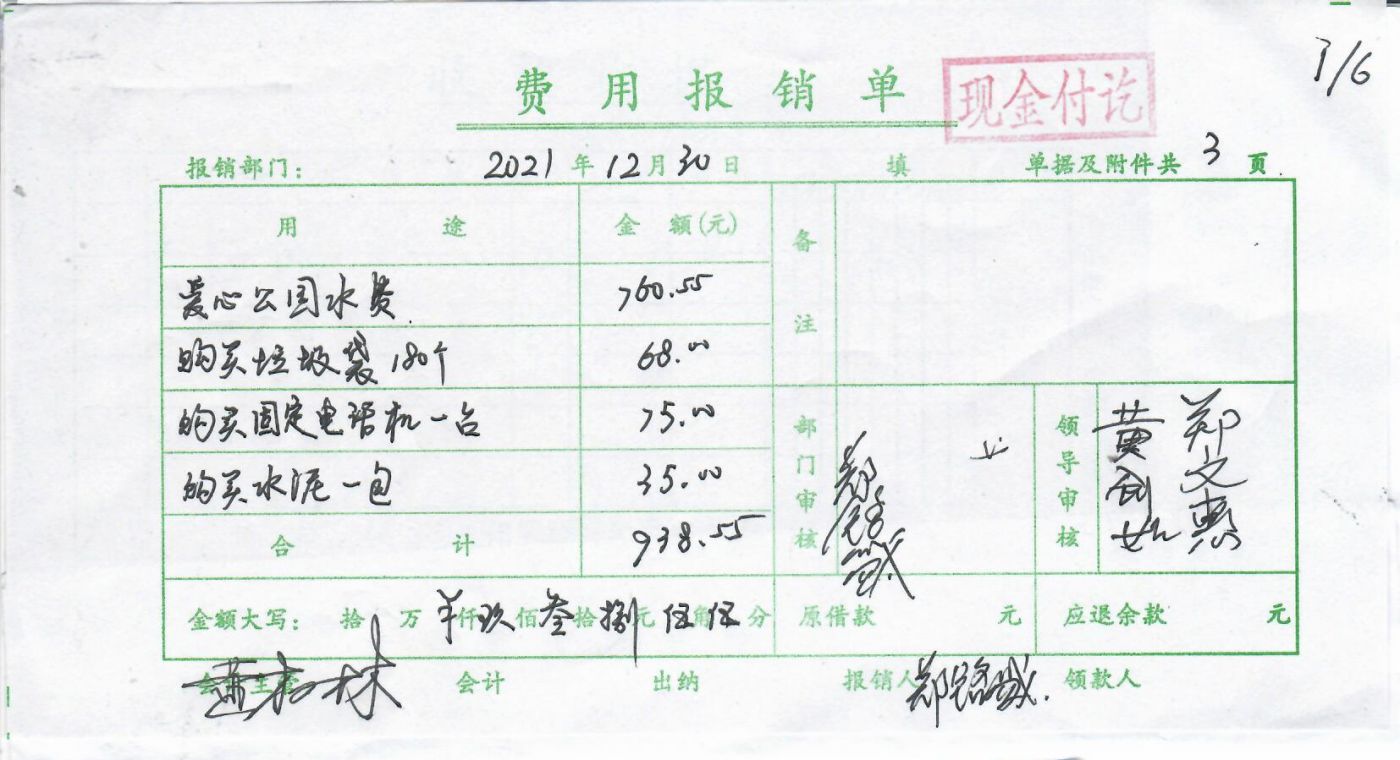 1/6
费用报销单 现金付讫
报销部门: 2021年12月30日 填 单据及附件共3页
用途 金额(元) 备注
爱心公园水费 760.55
购买垃圾袋180个 68.00
购买固定电话机一台 75.00
购买水泥一包 35.00
合计 938.55
部门审核 领导审核 黄剑如 郑文惠
金额大写: 拾万 仟玖佰叁拾捌元伍角伍分 原借款 元 应退余款 元
会计主管 会计 出纳 报销人 领款人